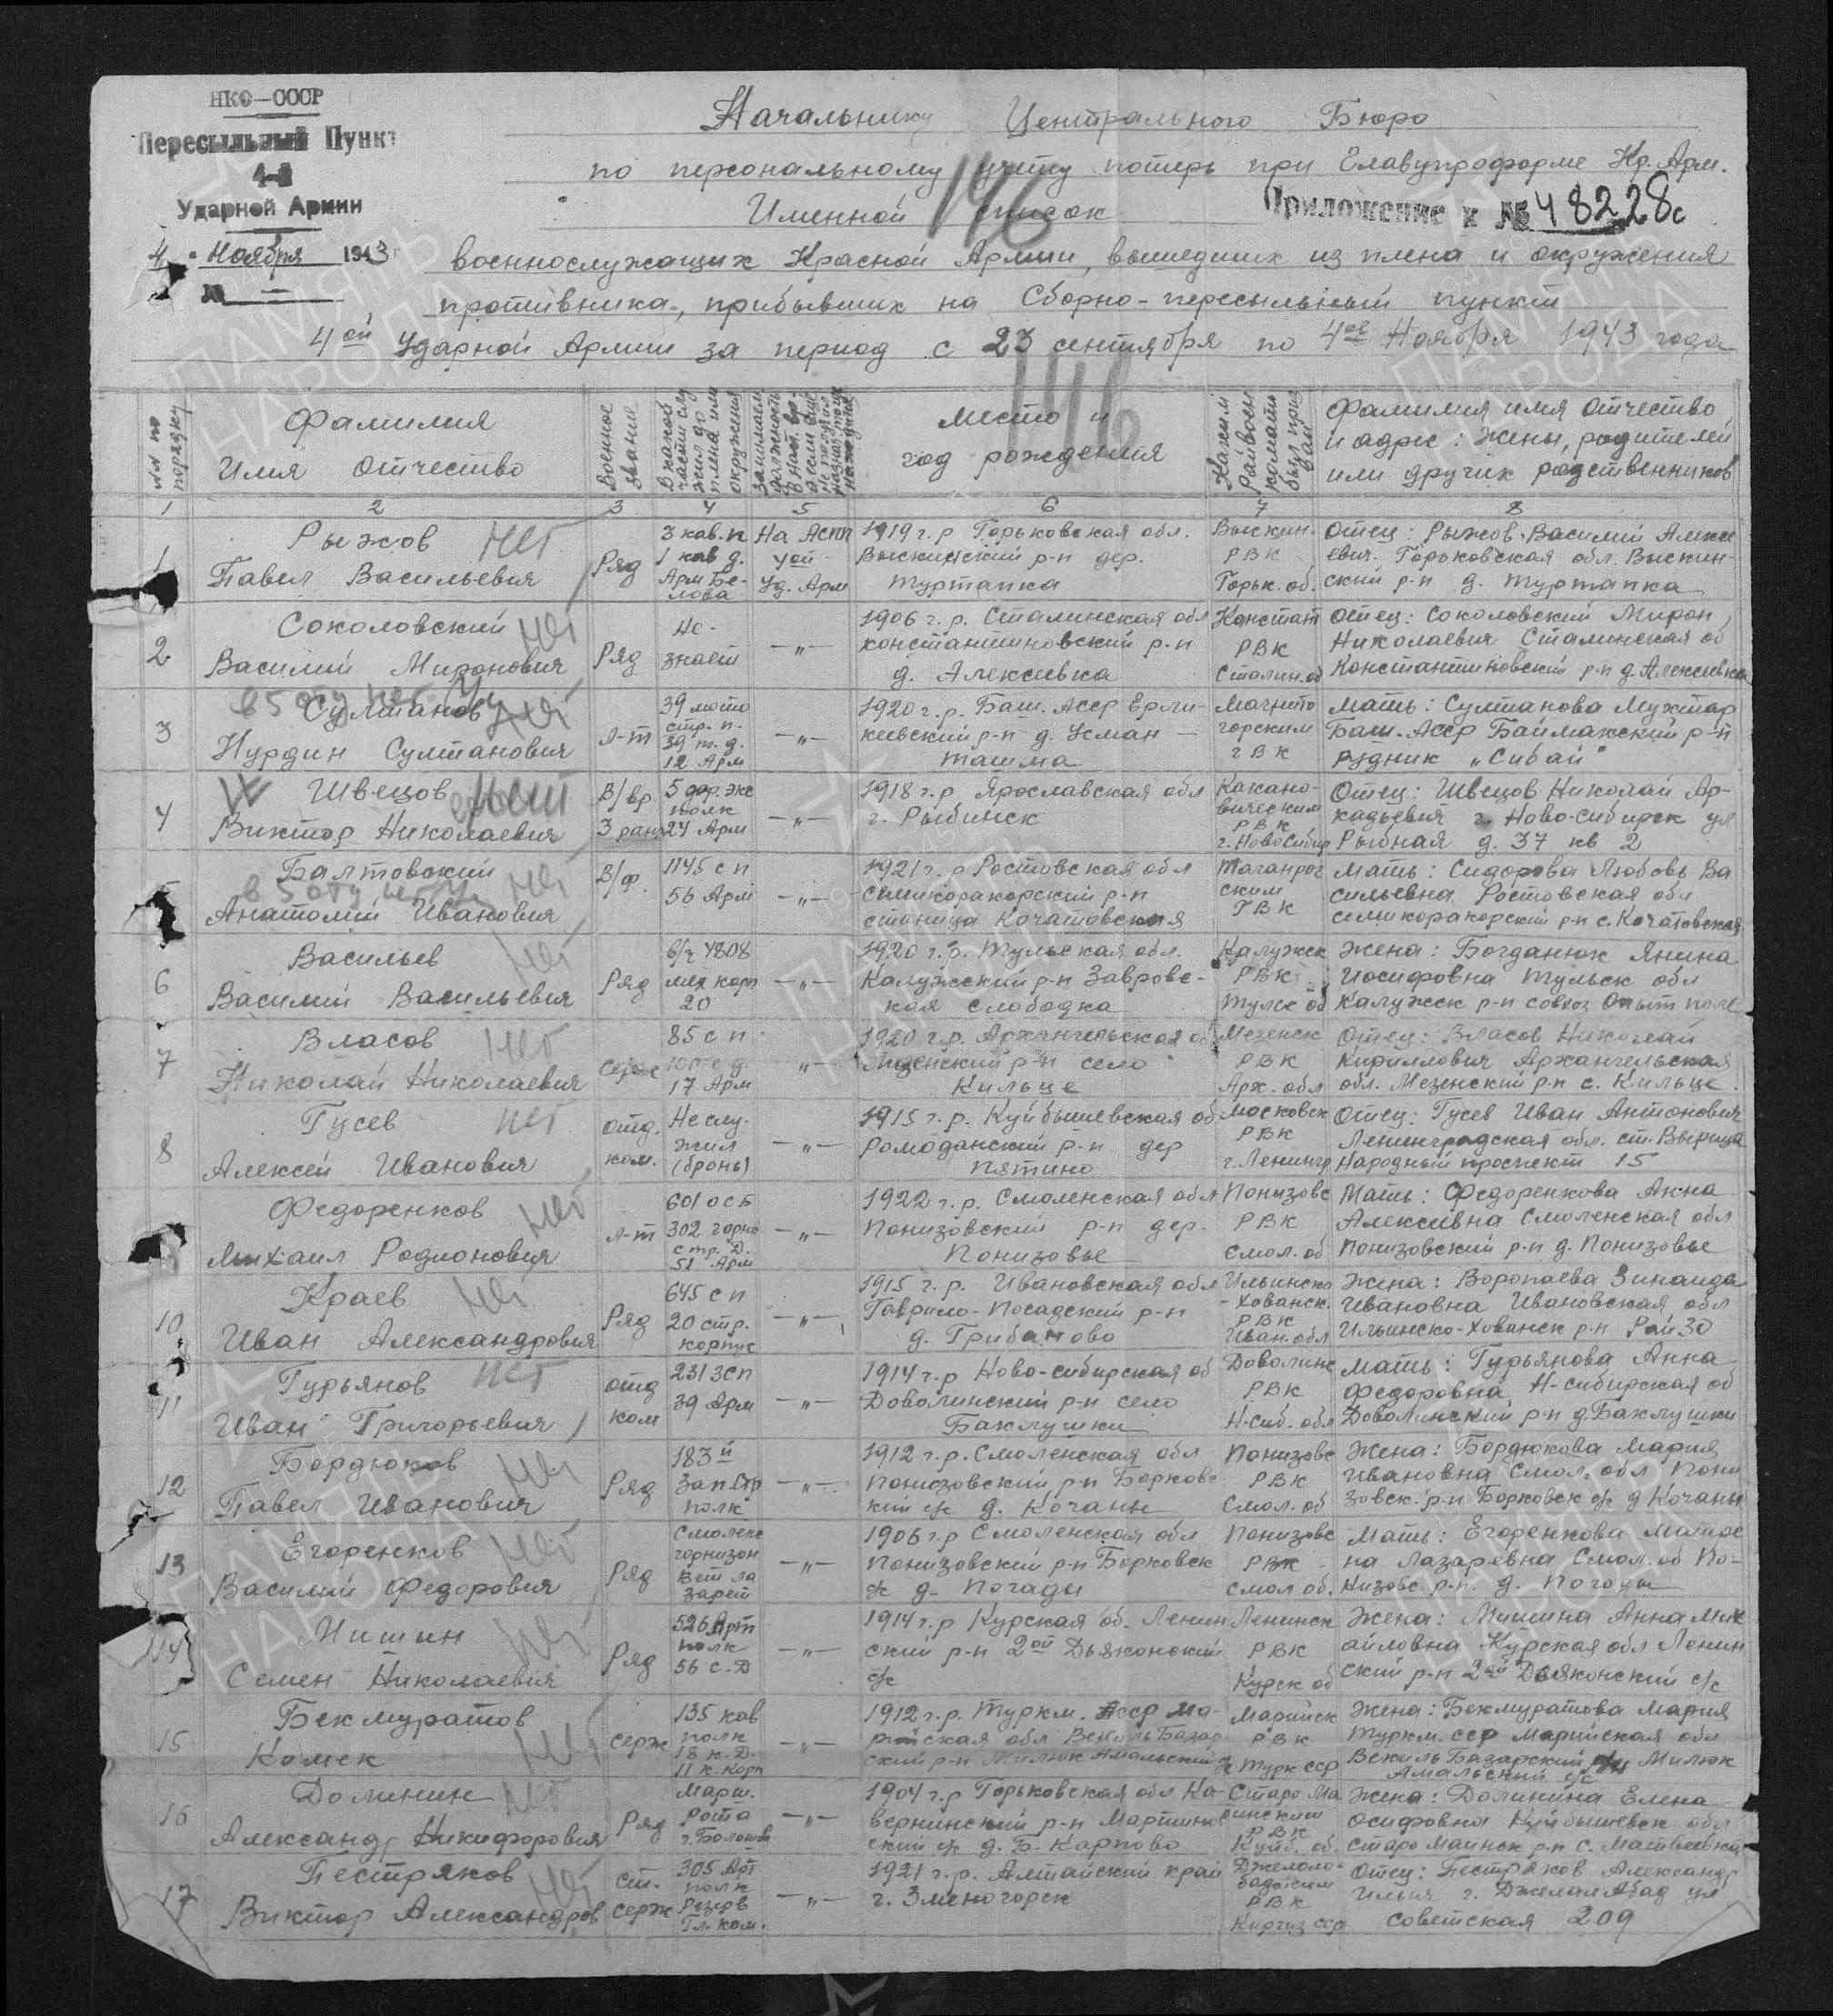 НКО—СССР
Пересыльный Пункт
4-й
Ударной Армии
4 " Ноября 1943
№ —
Начальнику Центрального Бюро
по персональному учету потерь при Главупроформе Кр. Арм.
146
Именной список
Приложение к № 48228с
военнослужащих Красной Армии, вышедших из плена и окружения
противника, прибывших на Сборно-пересыльный пункт
4ой Ударной Армии за период с 23 сентября по 4ое Ноября 1943 года
146
№№ по порядку
Фамилия
Имя отчество
Военное звание
В какой части служил до плена или окружения
Место и
год рождения
Каким Райвоен коматом был призван
Фамилия имя отчество
и адрес: жены, родителей
или других родственников
1 2 3 4 5 6 7 8
1
Рыжов нет
Павел Васильевич
Ряд
3 кав. п
1 кав д.
Арм Бе-
лова
На АСПП
4ой
Уд. Арм
1919 г.р Горьковская обл.
Выскинский р-н дер.
Туртапка
Выскин.
РВК
Горьк. об.
Отец: Рыжов Василий Алексе
евич. Горьковская обл. Выскин-
ский р-н д. Туртапка
2
Соколовский нет
Василий Миронович
Ряд
Не-
знает
—"—
1906 г.р. Сталинская обл
константиновский р-н
д. Алексеевка
Констант
РВК
Сталин. об
Отец: Соколовский Мирон
Николаевич Сталинская об
Константиновский р-н д. Алексеевка
3
в 5 оту нет
Султанов нет
Нурдин Султанович
л-т
39 мото
стр. п.
39 т. д.
12 Арм
—"—
1920 г.р. Баш. Асср Ерми-
кеевский р-н д. Усман —
ташма
Магнито
горским
ГВК
Мать: Султанова Мухтар
Баш. Асср Баймакский р-н
рудник „Сибай"
4
Швецов
Виктор Николаевич
В/вр.
3 ранг
5 дор. экс
полк
24 Арм
—"—
1918 г.р Ярославская обл
г. Рыбинск
Кагано-
вическим
РВК
г. НовоСибир
Отец: Швецов Николай Ар-
кадьевич г. Ново-сибирск ул
Рыбная д. 37 кв 2
5
Балтовский нет
в 5 оту нет
Анатолий Иванович
В/ф.
1145 с п
56 Арм
—"—
1921 г.р Ростовская обл
семикоракорский р-н
станица Кочатовская
Таганрог
ским
ГВК
Мать: Сидорова Любовь Ва
сильевна Ростовская обл
семикоракорский р-н с. Кочатовская
6
Васильев нет
Василий Васильевич
Ряд
в/ч 4808
мех корп
20
—"—
1920 г.р. Тульская обл.
Калужский р-н Завровс-
кая слободка
Калужск
РВК
Тулск об
Жена: Богданюк Янина
Иосифовна Тульск обл
Калужск р-н совхоз Опыт поле
7
Власов нет
Николай Николаевич
Серж
85 с п
17 Арм
"—
1920 г.р. Архангельская об
Мезенский р-н село
Кильце
Мезенск
РВК
Арх. обл
Отец: Власов Николай
Кириллович Архангельская
обл. Мезенский р-н с. Кильце.
8
Гусев нет
Алексей Иванович
отд.
ком.
Не слу-
жил
(бронь)
—"—
1915 г.р. Куйбышевская об
Ромоданский р-н дер
пятино
Московск
РВК
г. Ленингр
Отец: Гусев Иван Антонович
Ленинградская обл. ст. Вырица
Народный проспект 15
Федоренков нет
Михаил Родионович
л-т
601 осб
302 горно
стр. Д.
51 Арм
—"—
1922 г.р. Смоленская обл
Понизовский р-н дер.
Понизовье
Понизовс
РВК
Смол. об
Мать: Федоренкова Анна
Алексеевна Смоленская обл
Понизовский р-н д. Понизовье
10
Краев нет
Иван Александрович
Ряд
645 с п
20 стр.
корпус
—"—
1915 г.р. Ивановская обл
Гаврило-Посадский р-н
д. Грибаново
Ильинско
-Хованск.
РВК
Иван. обл
Жена: Воропаева Зинаида
Ивановна Ивановская обл
Ильинско-Хованск р-н РайЗО
11
Гурьянов нет
Иван Григорьевич
отд
ком
231 зсп
39 Арм
—"—
1914 г.р Ново-сибирская об
Доволинский р-н село
Баклушки
Доволинс
РВК
Н-сиб. обл
Мать: Гурьянова Анна
Федоровна Н-сибирская об
Доволинский р-н д Баклушки
12
Бордюков нет
Павел Иванович
Ряд
183й
Зап. Стр
полк
—"—
1912 г.р. Смоленская обл
Понизовский р-н Борковс
кий с/с д. Кочаны
Понизовс
РВК
Смол. об
Жена: Бордюкова Мария
Ивановна Смол. обл Пони
зовск. р-н Борковск с/с д Кочаны
13
Егоренков нет
Василий Федорович
Ряд
Смоленс
горнизон
Вет ла
зарет
—"—
1906 г.р Смоленская обл
Понизовский р-н Борковск
с/с д. Погады
Понизовс
РВК
Смол об.
Мать: Егоренкова Матре
на Лазаревна Смол. об По-
низовс р-н. д. Погоды
14
Мишин нет
Семен Николаевич
Ряд
526 Арт
полк
56 с. Д
—"—
1914 г.р Курская об. Ленин
ский р-н 2ой Дьяконский
с/с
Ленинск
РВК
Курск об
Жена: Мишина Анна Мих
айловна Курская обл Ленин
ский р-н 2ой Дьяконский с/с
15
Бекмуратов нет
Комек
серж
135 кав
полк
18 к. Д.
11 к. корп
—"—
1912 г.р. Туркм. сср Ма-
рийская обл Векиль Базар
ский р-н Милюк Амальский с/с
Марийск
РВК
Турк сср
Жена: Бекмуратова Мария
Туркм. сср Марийская обл
Векиль Базарский р-н Милюк
Амальский с/с
16
Долинин нет
Александр Никифорович
Ряд
Марш.
Рота
—"—
1904 г.р Горьковская обл Ко-
вернинский р-н Мартинов
ский с/с д. Б. Карпово
Старо Ма
инским
РВК
Куйб. об.
Жена: Долинина Елена
Осифовна Куйбышевск обл
Старо Маинск р-н с. Матвеевка
17
Пестряков нет
Виктор Александров
ст.
серж
305 Арт
полк
Резерв
Гл. ком.
—"—
1921 г.р. Алтайский край
г. Змеиногорск
Джелало-
бадским
РВК
Киргиз сср
Отец: Пестряков Александр
Ильич г. ДжелалАбад ул
советская 209
ПАМЯТЬ
НАРОДА